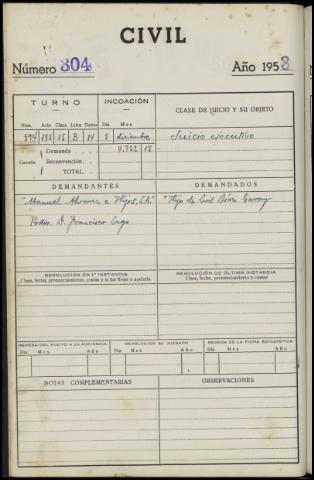 CIVIL
Número 304 Año 1958
TURNO INCOACIÓN CLASE DE JUICIO Y SU OBJETO
Núm. Acta Clase Letra Turno Día Mes
B 14 5 diciembre Juicio ejecutivo
Cuantía Demanda 4.752 15
Reconvención
TOTAL
DEMANDANTES DEMANDADOS
"Manuel Alvarez e Hijos, S.A." "Hijo de Luis
Francisco Lago
RESOLUCIÓN EN 1.ª INSTANCIA RESOLUCIÓN DE ÚLTIMA INSTANCIA
Clase, fecha, pronunciamiento, costas y si fué firme o apelada. Clase, fecha, pronunciamiento y costas
REMESA DEL PLEITO A LA AUDIENCIA DEVOLUCIÓN AL JUZGADO REMESA DE LA FICHA ESTADÍSTICA
Día Mes Año Día Mes Año Día Mes Año
NOTAS COMPLEMENTARIAS OBSERVACIONES